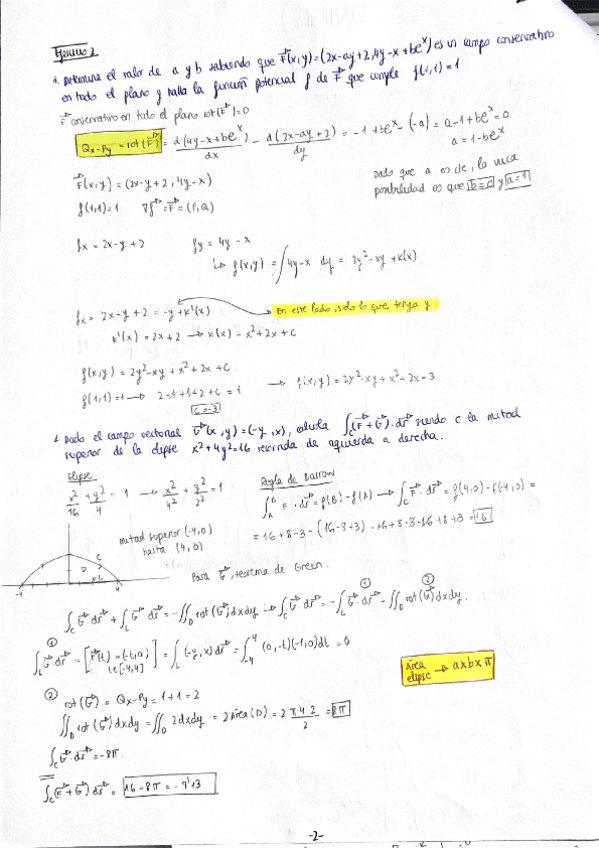 Ejercicio 2
1. Determina el valor de a y b sabiendo que F⃗(x,y)=(2x-ay+2, 4y-x+be^x) es un campo conservativo
en todo el plano y halla la función potencial f de F⃗ que cumple f(1,1)=1
F⃗ conservativo en todo el plano rot(F⃗)=0
Qx-Py = rot(F⃗) = d(4y-x+be^x)/dx - d(2x-ay+2)/dy = -1+be^x-(-a) = a-1+be^x=0
a=1-be^x
F⃗(x,y)=(2x-y+2, 4y-x)
Dado que a es cte, la única
posibilidad es que b=0 y a=1
f(1,1)=1 ∇f=F⃗=(P,Q)
fx = 2x-y+2 fy = 4y-x
↳ f(x,y)=∫4y-x dy = 2y²-xy+k(x)
fx = 2x-y+2 = -y+k'(x)
En este lado, solo lo que tenga y
k'(x)=2x+2 → k(x)=x²+2x+c
f(x,y)=2y²-xy+x²+2x+c
f(1,1)=1 → 2-1+1+2+c=1 → f(x,y)=2y²-xy+x²+2x-3
c=-3
2. Dado el campo vectorial G⃗(x,y)=(-y,x), calcula ∫c(F⃗+G⃗)·ds⃗ siendo c la mitad
superior de la elipse x²+4y²=16 recorrida de izquierda a derecha.
Elipse
x²/16 + y²/4 = 1 → x²/4² + y²/2² = 1
Regla de Barrow
∫_A^B F⃗·ds⃗=f(B)-f(A) → ∫c F⃗·ds⃗=f(4,0)-f(-4,0)=
=16+8-3-(16-8-3)=16+8-3-16+8+3=16
mitad superior (-4,0)
hasta (4,0)
C
D
L
-4 4
Para G⃗, teorema de Green.
∫c G⃗ ds⃗+∫L G⃗ ds⃗=-∬D rot(G⃗)dxdy → ∫c G⃗ ds⃗=-∫L G⃗ ds⃗-∬D rot(G⃗)dxdy.
① ②
① ∫L G⃗ ds⃗=[r⃗(t)=(-t,0) t∈[-4,4]]=∫L(-y,x)ds⃗=∫_-4^4(0,-t)(-1,0)dt=0
Área
elipse → axbxπ
② rot(G⃗)=Qx-Py=1+1=2
∬D rot(G⃗)dxdy=∬D 2dxdy=2Área(D)=2 π·4·2/2=8π
∫c G⃗ ds⃗=-8π.
∫c(F⃗+G⃗)ds⃗= 16-8π=-9'13
-2-